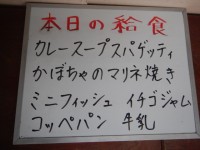 本日の給食
カレースープスパゲッティ
かぼちゃのマリネ焼き
ミニフィッシュ イチゴジャム
コッペパン 牛乳